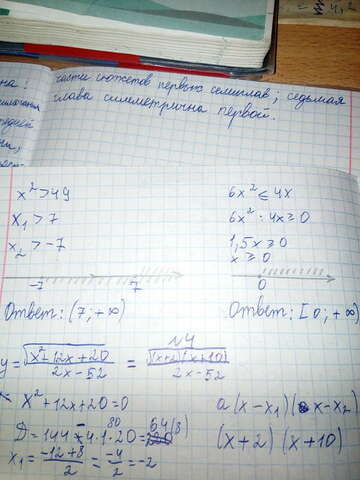 части сюжетов первых семи глав; седьмая
глава симметрична первой.
x² > 49
x₁ > 7
x₂ > -7
-7 7
Ответ: (7; +∞)
6x² ≤ 4x
6x² · 4x ≥ 0
1,5x ≥ 0
x ≥ 0
0
Ответ: [0; +∞)
N4
y = √(x²+12x+20) / (2x-52) = √((x+2)(x+10)) / (2x-52)
x²+12x+20=0
D = 144 - 4·1·20 = 64(8)
80
x₁ = (-12+8)/2 = -4/2 = -2
a(x-x₁)(x-x₂)
(x+2)(x+10)